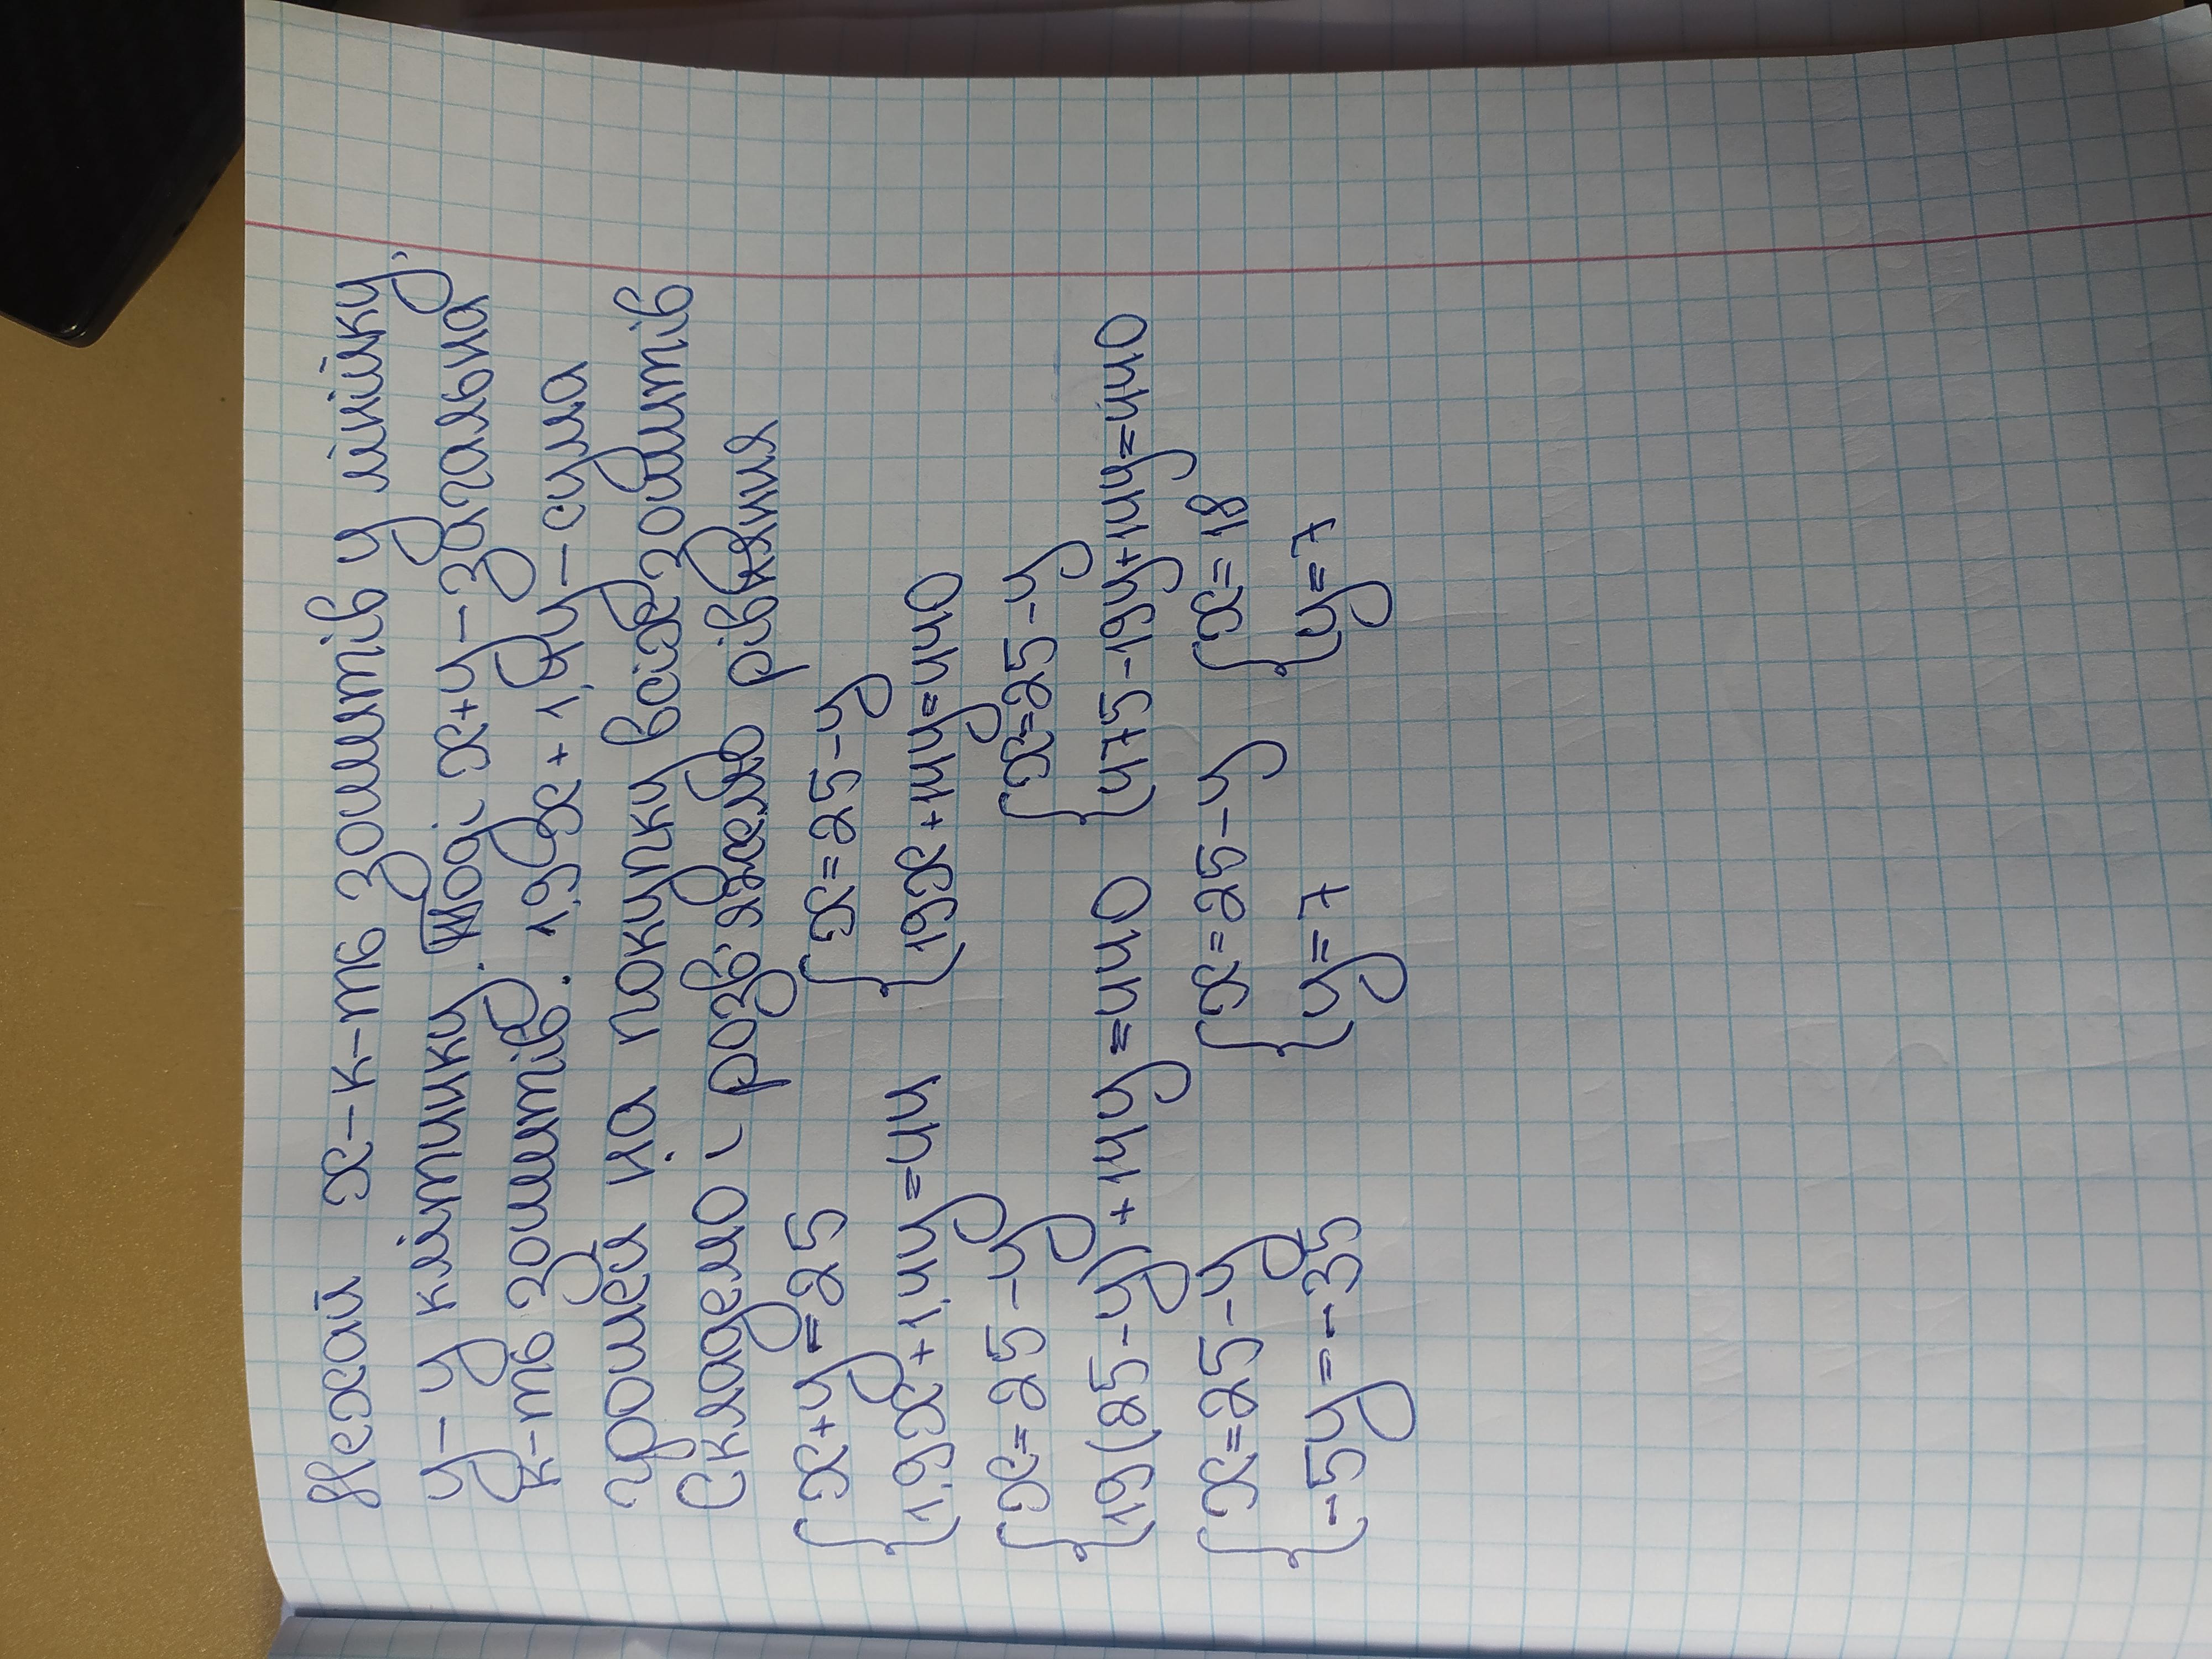 Нехай x-к-ть зошитів у лінійку,
y-у клітинку. Тоді x+y-загальна
к-ть зошитів. 1,9x+1,4y-сума
грошей на покупку всіх зошитів
Складемо і розв'яжемо рівняння
{x+y=25 {x=25-y
{1,9x+1,4y=44 {19x+14y=440
{x=25-y {x=25-y
{19(25-y)+14y=440 {475-19y+14y=440
{x=25-y {x=25-y {x=18
{-5y=-35 {y=7 {y=7